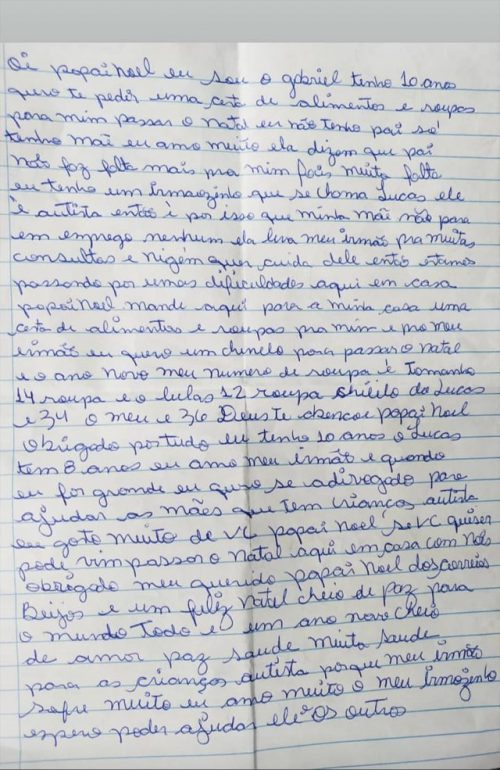 Oi papai Noel eu sou o gabriel tenho 10 anos
quero te pedir uma ceta de alimentos e roupas
para mim passar o natal eu não tenho pai só
tenho mãe eu amo muito ela dizem que pai
não faz falta mais pra mim fais muita falta
eu tenho um irmaozinho que se choma Lucas ele
é autista então é por isso que minha mãe não para
em emprego nenhum ela leva meu irmão pra muitas
consultas e nigem quer cuida dele então estamos
passando por umas dificuldades aqui em casa
papai noel mande aqui para a minha casa uma
ceta de alimentos e roupas pra mim e pro meu
irmão eu quero um chinelo para passar o natal
e o ano novo meu numero de roupa é tamanho
14 roupa e o lulas 12 roupa do Lucas
e 34 o meu e 36 Deus te abencoe papai noel
obrigado por tudo eu tenho 10 anos o Lucas
tem 8 anos eu amo meu irmão e quando
eu for grande eu quro se adivogado para
ajudar as mães que tem crianças autista
eu goto muito de VC papai noel se VC quiser
pode vim passar o natal aqui em casa com nós
obrigado meu querido papai noel dos correios
Beijos e um feliz natel cheio de paz para
o mundo todo e um ano novo cheio
de amor paz saude muita saude
para as crianças autista porque meu irmão
sofre muito eu amo muito o meu irmozinho
espero poder ajudar ele e os outros